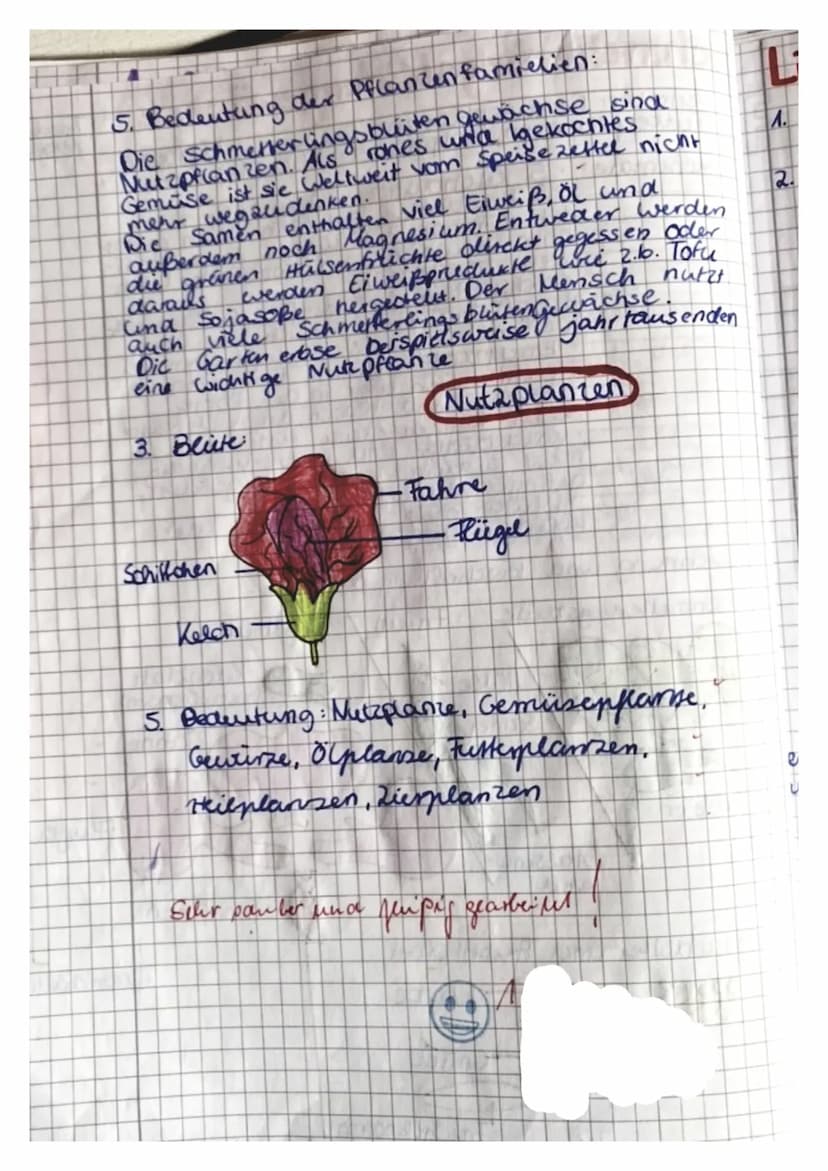 5. Bedeutung der Pflanzenfamielien:
Die Schmetterlingsblütengewächse sind
Nutzpflanzen. Als rohes und gekochtes
Gemüse ist sie Weltweit vom Speisezettel nicht
mehr wegzudenken.
Die Samen enthalten viel Eiweiß, Öl und
außerdem noch Magnesium. Entweder werden
die grünen Hülsenfrüchte direkt gegessen oder
daraus werden Eiweißprodukte wie z.b. Tofu
und Sojasoße hergestellt. Der Mensch nutzt
auch viele SchmetterlingsblütenGewächse.
Die Gartenerbse beispielsweise jahrtausenden
eine wichtige Nutzpflanze
Nutzplanzen
3. Blüte:
Fahne
Flügel
Schiffchen
Kelch
5. Bedeutung: Nutzplanze, Gemüsepflanze,
Gewürze, Ölplanze, Futterplanzen,
Heilplanzen, Zierplanzen
Sehr sauber und fleißig gearbeitet!
1
Li
1.
2.
e